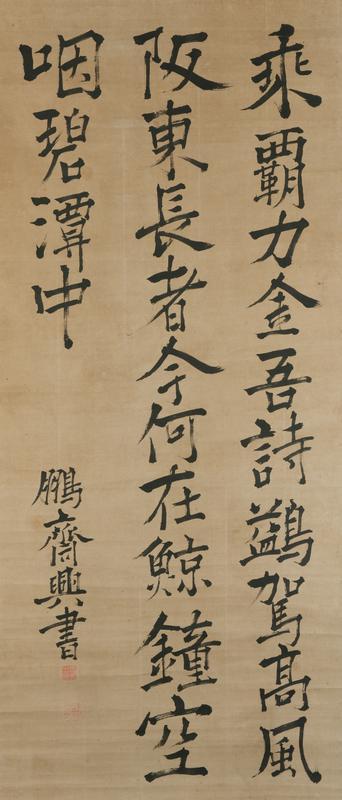 乘覇力金吾詩鷁駕高風
阪東長者今何在鯨鐘空
咽碧潭中
鵬齋興書